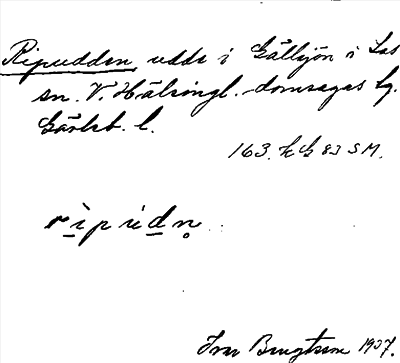 Ripudden, udde i Gällsjön i Los
sn. V. Hälsingl. domsagas tg.
Gävleb. l.
163. h G 83 S M.
ripudn
Ivar Bengtsson 1937.